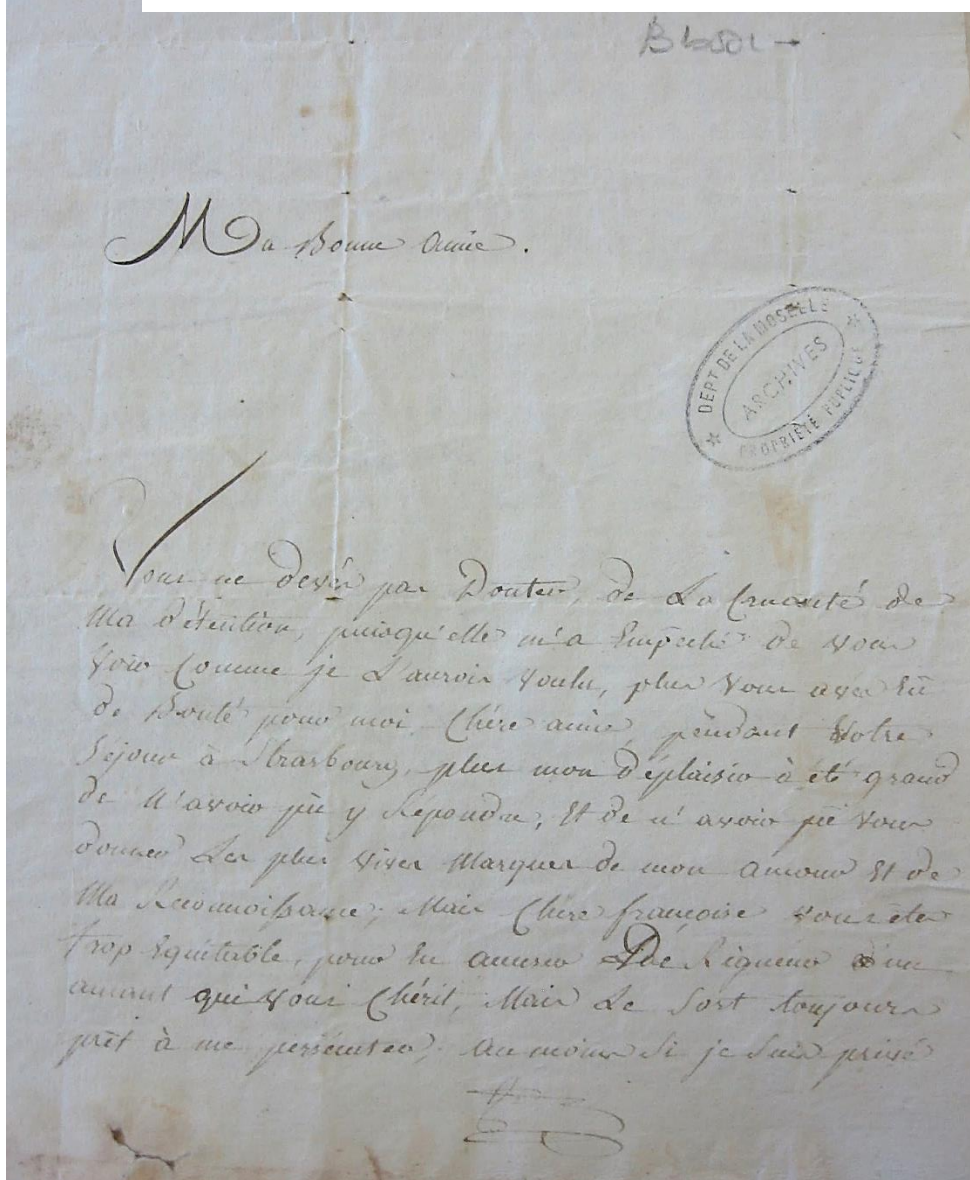 Ma Bonne Amie.
DEPT DE LA MOSELLE
ARCHIVES
PROPRIÉTÉ PUBLIQUE
Vous ne devés pas Douter, de La Cruauté de
Ma Détention, puisqu'elle m'a Empeché de vous
Voir Comme je L'aurois Voulu, plus Vous avés Eü
de Bonté pour moi, Chére amie, pendant Votre
Séjour à Strasbourg, plus mon Déplaisir à été grand
de N'avoir pü y Repondre, Et de n'avoir pü Vous
donner Les plus Vives Marques de mon amour Et de
Ma Reconnoissance; Mais Chére françoise vous étes
trop Equitable, pour En accuser De Rigueur d'un
amant qui Vous Chérit, Mais Le Sort toujours
prêt à me persécuter, Au moins Si je Suis privé